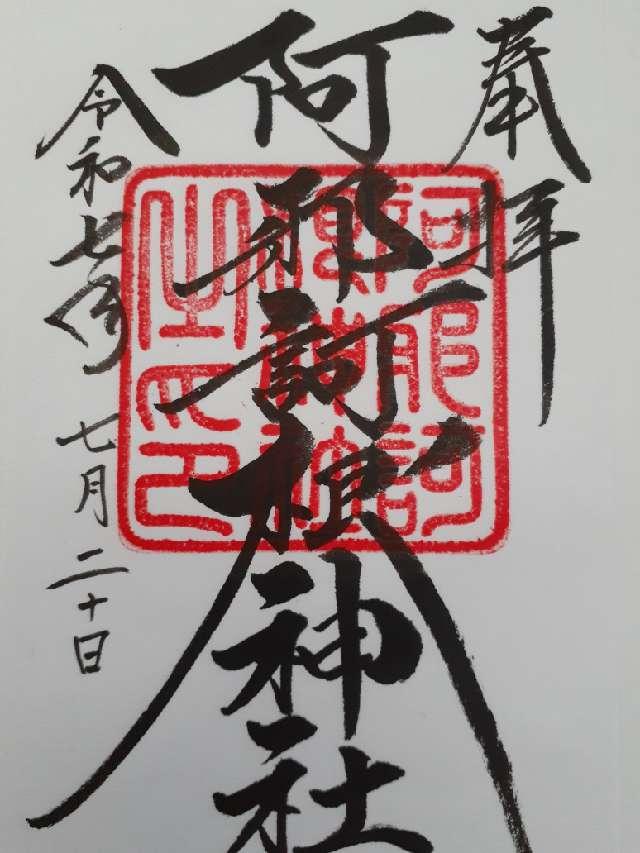 奉拝
阿邪訶根神社
阿邪訶
根神社
之印
令和七年七月二十日